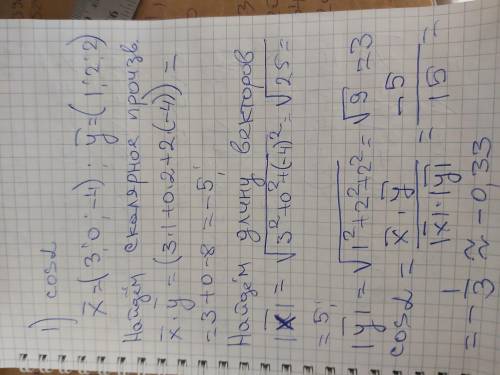 1) cosα
x̄=(3; 0; -4); ȳ=(1; 2; 2)
Найдём скалярное произв.
x̄·ȳ = (3·1+0·2+2·(-4)) =
=3+0-8 = -5;
Найдём длину векторов
|x̄| = √3²+0²+(-4)² = √25 =
= 5;
|ȳ| = √1²+2²+2² = √9 = 3
cosα = x̄·ȳ / |x̄|·|ȳ| = -5 / 15 =
= - 1/3 ≈ -0,33